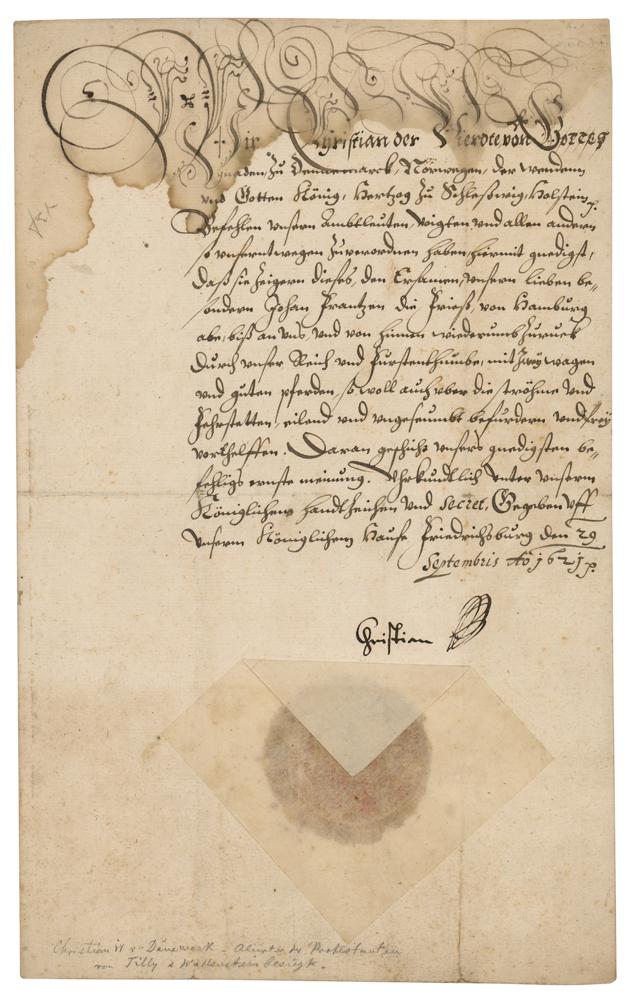 Wir Christian der Vierdte von Gottes
gnaden, zu Dennemarck, Norwegen, der Wenden
und Gotten König, Hertzog zu Schleßwig, Holstein p.
Befehlen unsern Ambtleuten, Voigten und allen andern
so unserntwegen zuverordnen haben, hiermit gnedigst,
daß sie Zeigern dieses, den Ersamen, unsern lieben be-
sondern Johan Frantzen die Frieß, von Hamburg
abe, biß an uns, und von hinnen wiederumb zuruck
durch unser Reich und Furstenthumbe, mit zwey wagen
und guten pferden, so woll auch uber die Ströhme und
Fehrstetten, eilend und ungeseumbt befurdern und frey
vorthelffen. Daran geschicht unsers gnedigsten be-
fehligs ernste meinung. Uhrkundtlich unter unserm
Königlichem handtzeichen und Secret. Gegeben uff
unserm Königlichem Hause Friedrichsburg den 29
Septembris Ao 1621 p.
Christian
Christian IV v. Dänemark - Protestanten
von Tilly & Wallenstein besiegt.